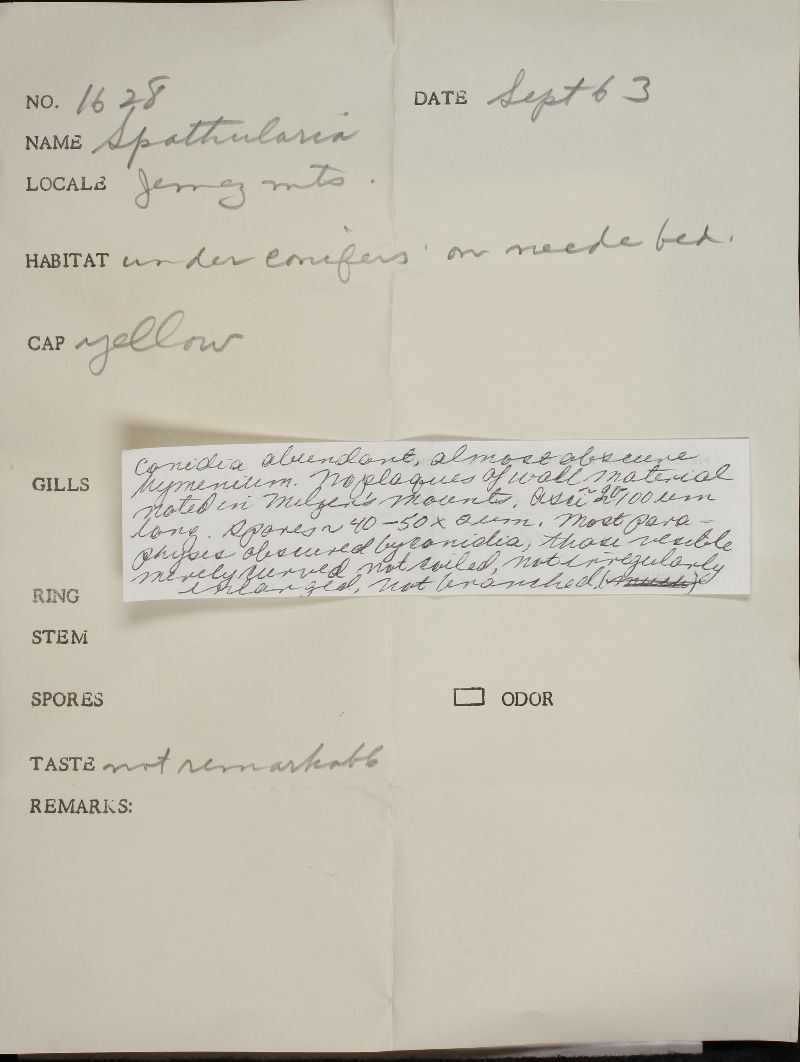 NO. 1628
DATE Sept 63
NAME Spathularia
LOCALE Jemez mts.
HABITAT under conifers on neede bed.
CAP yellow
Conidia abundant, almost obscure
hymenium. No plaques of wall material
noted in Melzer's mounts. Asci ~90-100 um
long. Spores ~ 40-50 x 2um. Most para-
physis obscured by conidia, those vesible
merely curved, not coiled, not irregularly
enlarged, not branched
GILLS
RING
STEM
SPORES
ODOR
TASTE not remarkabb
REMARKS: